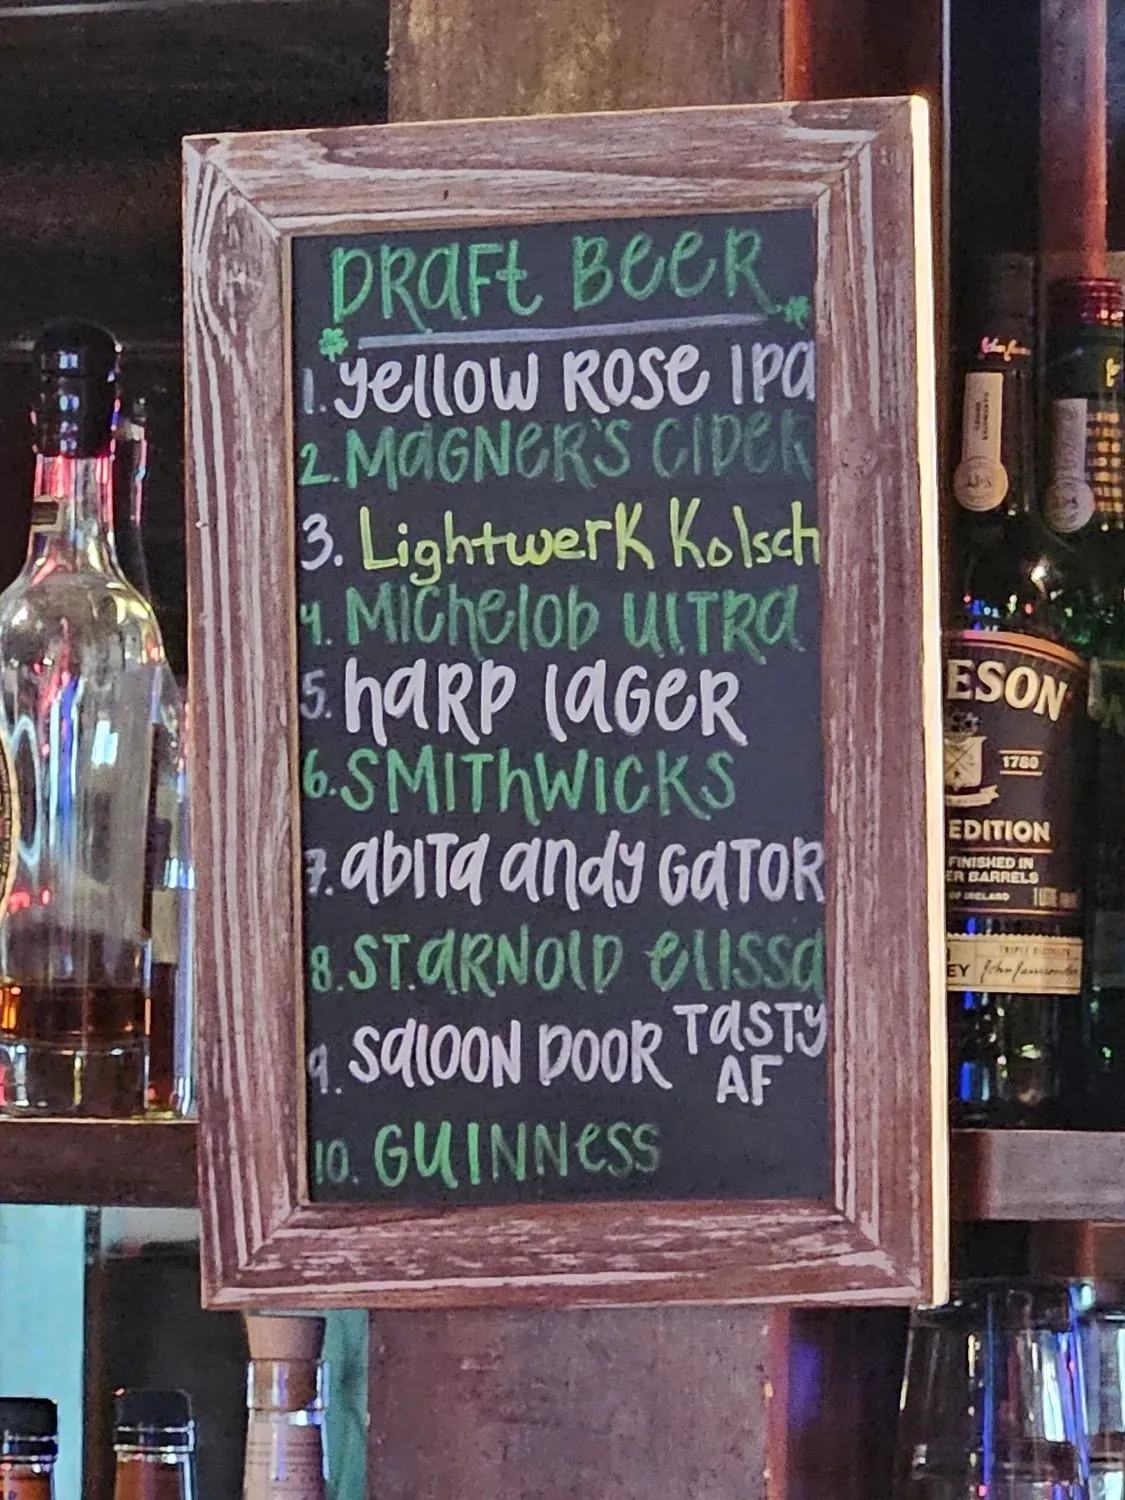 DRaFt BeeR
1. yellow ROSe IPa
2. MaGNeR'S CIDeR
3. Lightwerk Kolsch
4. MIChelob UlTRa
5. haRP laGeR
6. SMIThWICKS
7. abITa andy GaTOR
8. ST. aRNOlD elISSa
9. SalOON DOOR TaSTy
AF
10. GUINNeSS
ESON
1780
EDITION
FINISHED IN
ER BARRELS
OF IRELAND
TRIPLE DISTILLED
EY John Jameson